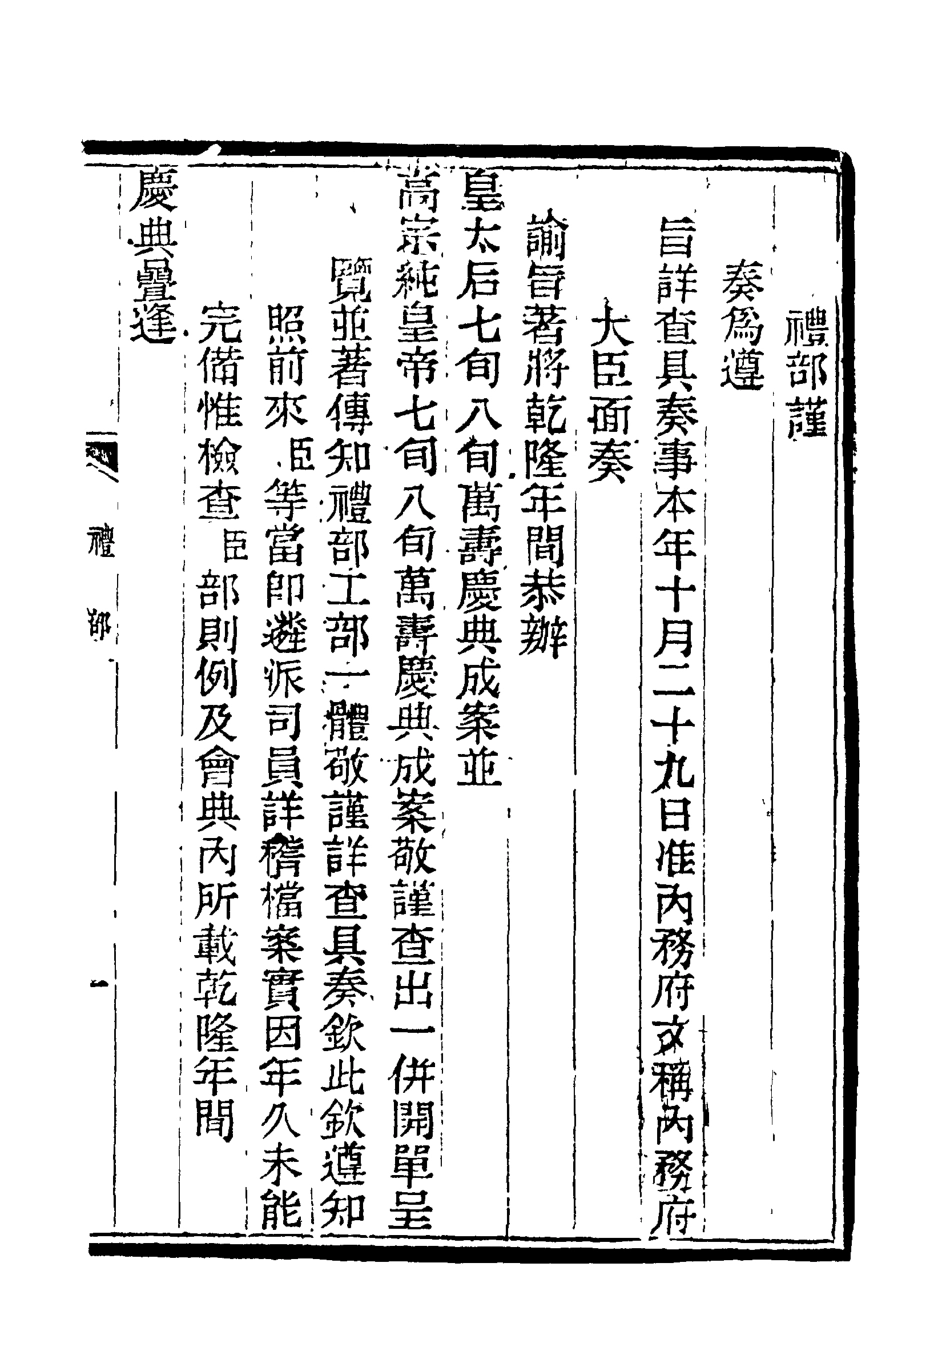 禮部謹
奏爲遵
旨詳查具奏事本年十月二十九日准內務府文稱內務府
大臣面奏
諭旨著將乾隆年間恭辦
皇太后七旬八旬萬壽慶典成案並
高宗純皇帝七旬八旬萬壽慶典成案敬謹查出一併開單呈
覽並著傳知禮部工部一體敬謹詳查具奏欽此欽遵知
照前來臣等當卽遴派司員詳稽檔案實因年久未能
完備惟檢查臣部則例及會典內所載乾隆年間
慶典疊逢
禮部
一